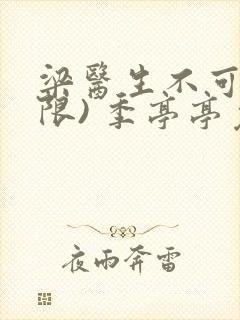 梁醫生不可
限)季亭亭
夜雨奔雷